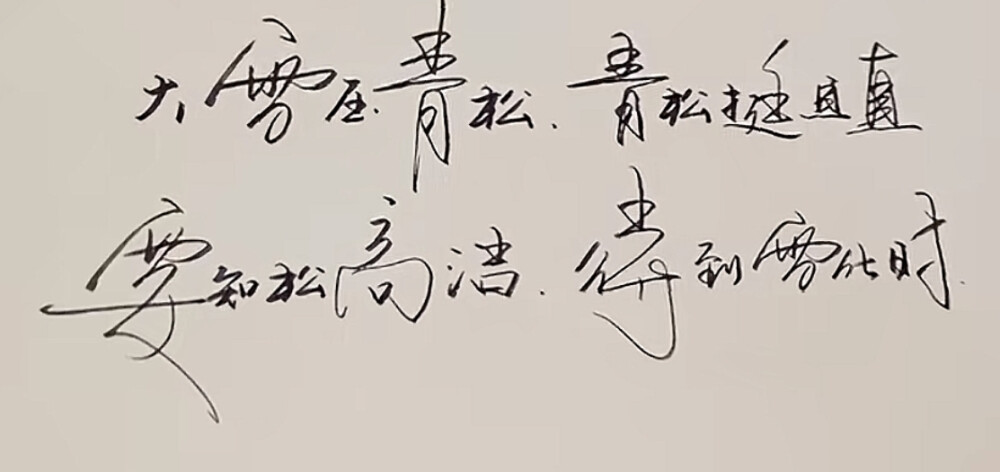 大雪压青松.青松挺且直
要知松高洁.待到雪化时.